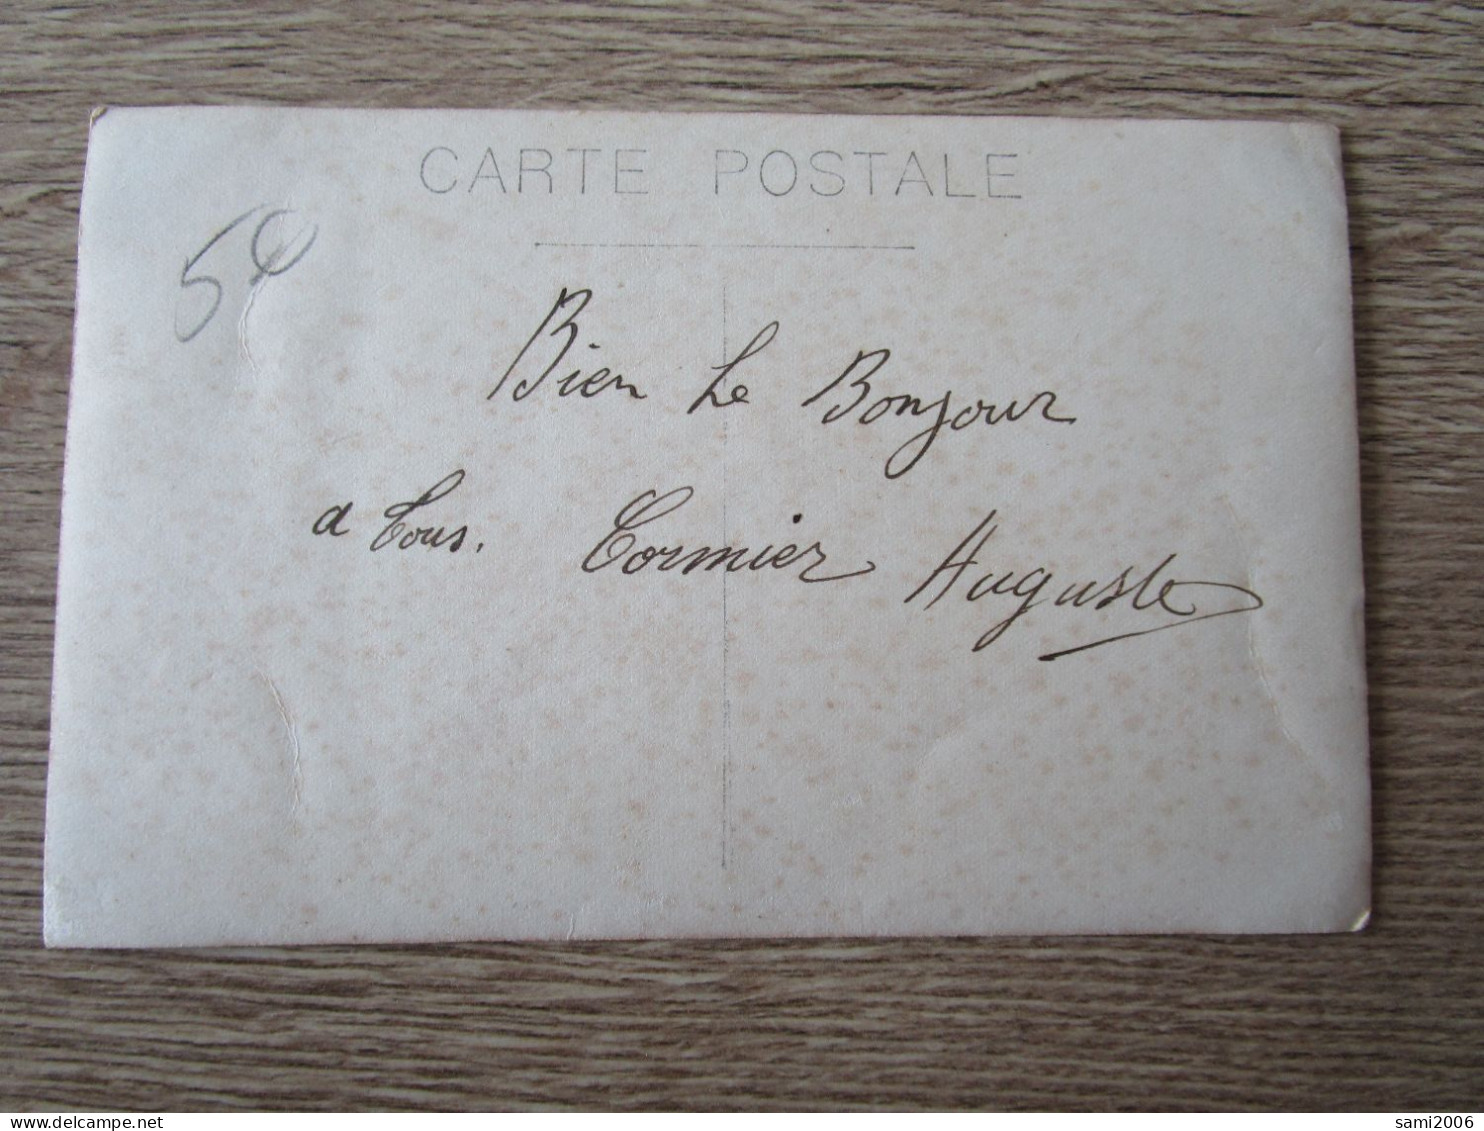 CARTE POSTALE
5€
Bien Le Bonjour
a tous. Cormier Auguste
sami2006